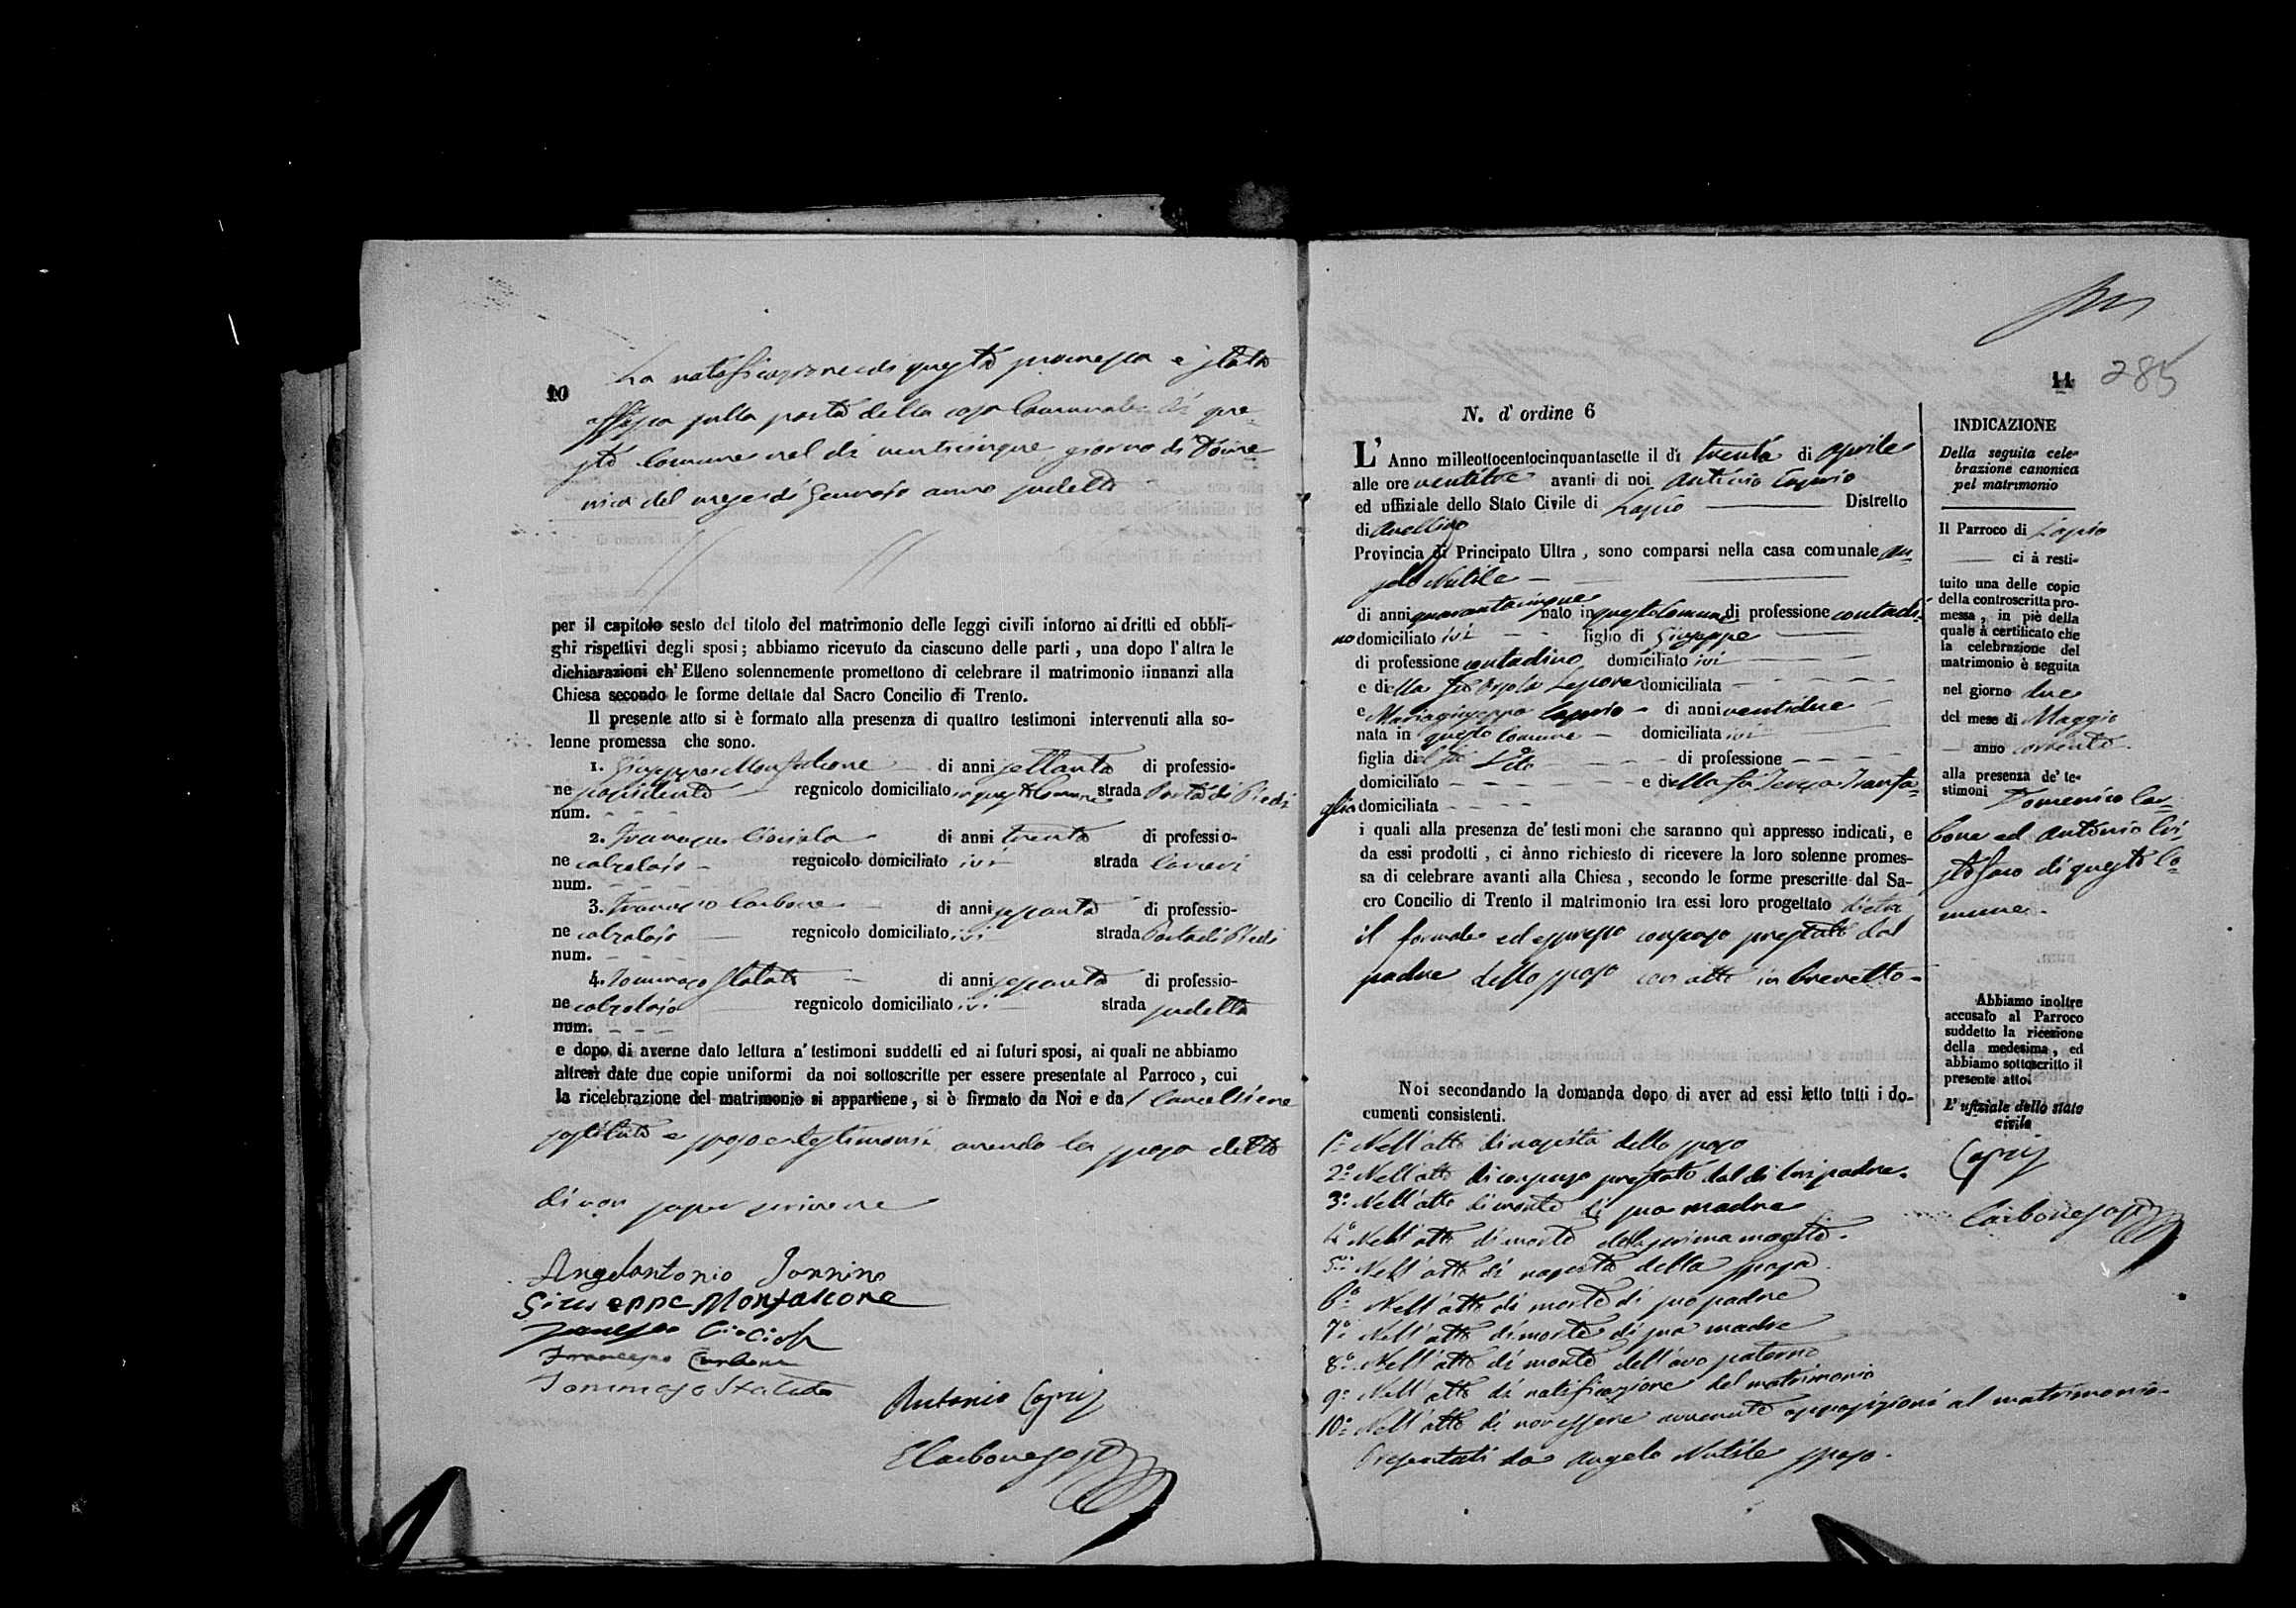 10
La notificazione di questa promessa è stata
affissa sulla porta della casa Comunale di que-
sto Comune nel dì venticinque giorno di Dome
nica del mese di Gennaio anno sudetto
per il capitolo sesto del titolo del matrimonio delle leggi civili intorno ai dritti ed obbli-
ghi rispettivi degli sposi; abbiamo ricevuto da ciascuno delle parti, una dopo l'altra le
dichiarazioni ch' Elleno solennemente promettono di celebrare il matrimonio innanzi alla
Chiesa secondo le forme dettate dal Sacro Concilio di Trento.
Il presente atto si è formato alla presenza di quattro testimoni intervenuti alla so-
lenne promessa che sono.
1. Giuseppe Monfalcone di anni settanta di professio-
ne possidente regnicolo domiciliato in questo Comune strada Porta di Piedi
num.
2. Francesco Ciociola di anni trenta di professio-
ne calzolajo regnicolo domiciliato ivi strada
num.
3. Francesco Carbone di anni sessanta di professio-
ne calzolajo regnicolo domiciliato ivi strada Porta di Piedi
num.
4. Tommaso Statuto di anni sessanta di professio-
ne calzolajo regnicolo domiciliato ivi strada sudetta
num.
e dopo di averne dato lettura a' testimoni suddetti ed ai futuri sposi, ai quali ne abbiamo
altresì date due copie uniformi da noi sottoscritte per essere presentate al Parroco, cui
la ricelebrazione del matrimonio si appartiene, si è firmato da Noi e dal Cancelliere
sostituto e sposo e testimonii avendo la sposa detto
di non saper scrivere
Angelantonio Jannino
Giuseppe Monfalcone
Francesco Ciociola
Francesco Carbone
Tommaso Statuto
Antonio Caprij
E Carbone sosto
11 285
N. d' ordine 6
L' Anno millеottocentocinquantasette il dì trenta di aprile
alle ore ventitre avanti di noi Antonio Caprio
ed uffiziale dello Stato Civile di Lapio Distretto
di Avellino
Provincia di Principato Ultra, sono comparsi nella casa comunale An-
gelo Nutile
di anni quarantacinque nato in questo Comune di professione contadi-
no domiciliato ivi figlio di Giuseppe
di professione contadino domiciliato ivi
e di della fu Orsola Lepore domiciliata
e Mariagiuseppa Caprio di anni ventidue
nata in questo Comune domiciliata ivi
figlia di fu Vito di professione
domiciliato e di della fu Teresa Tranfa-
glia domiciliata
i quali alla presenza de' testimoni che saranno quì appresso indicati, e
da essi prodotti, ci ànno richiesto di ricevere la loro solenne promes-
sa di celebrare avanti alla Chiesa, secondo le forme prescritte dal Sa-
cro Concilio di Trento il matrimonio tra essi loro progettato dietro
il formale ed espresso consenso prestato dal
padre dello sposo con atto in brevetto
Noi secondando la domanda dopo di aver ad essi letto tutti i do-
cumenti consistenti.
1º Nell'atto di nascita dello sposo
2º Nell'atto di consenso prestato dal di lui padre.
3º Nell'atto di morte di sua madre
4º Nell'atto di morte della prima moglie.
5º Nell'atto di nascita della sposa.
6º Nell'atto di morte di suo padre
7º Nell'atto di morte di sua madre
8º Nell'atto di morte dell'avo paterno
9º Nell'atto di notificazione del matrimonio
10º Nell'atto di non essere avvenute opposizioni al matrimonio
Presentati da Angelo Nutile sposo.
INDICAZIONE
Della seguita cele-
brazione canonica
pel matrimonio
Il Parroco di Lapio
ci à resti-
tuito una delle copie
della controscritta pro-
messa, in piè della
quale à certificato che
la celebrazione del
matrimonio è seguita
nel giorno due
del mese di Maggio
anno corrente
alla presenza de' te-
stimoni Domenico Car-
bone ed Antonio Cri
stofaro di questo Co-
mune.
Abbiamo inoltre
accusato al Parroco
suddetto la ricezione
della medesima, ed
abbiamo sottoscritto il
presente atto.
L' uffiziale dello stato
civile
Caprij
Carbone sosto